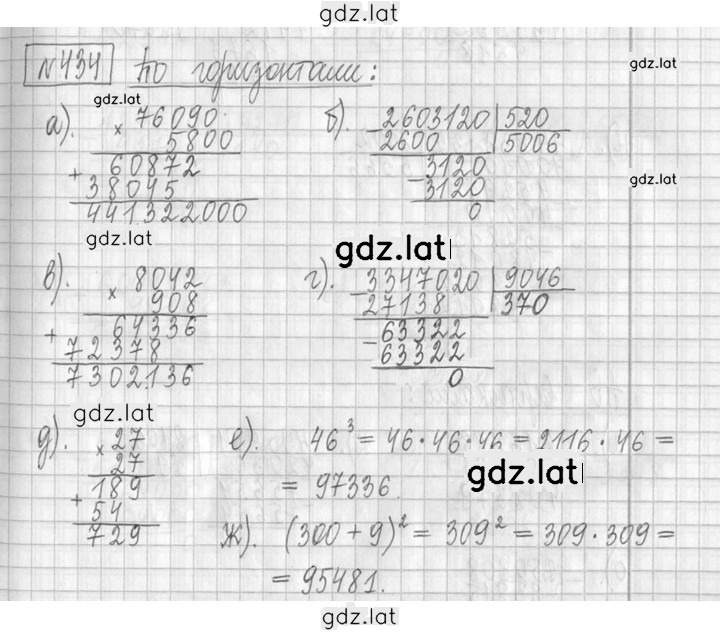 gdz.lat
№434 По горизонтали:
gdz.lat
gdz.lat
а). × 76090
5800
+ 60872
38045
441322000
б). - 2603120 | 520
2600 | 5006
- 3120
3120
0
gdz.lat
gdz.lat
gdz.lat
в). × 8042
908
+ 64336
72378
7302136
г). - 3347020 | 9046
27138 | 370
- 63322
63322
0
gdz.lat
д). × 27
27
+ 189
54
729
е). 46³ = 46·46·46 = 2116·46 =
= 97336.
gdz.lat
ж). (300+9)² = 309² = 309·309 =
= 95481.
gdz.lat